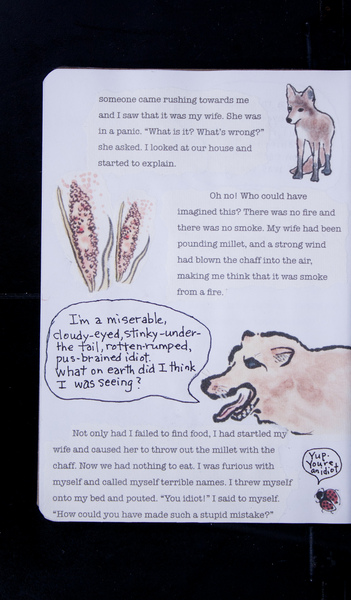 someone came rushing towards me
and I saw that it was my wife. She was
in a panic. “What is it? What’s wrong?”
she asked. I looked at our house and
started to explain.
Oh no! Who could have
imagined this? There was no fire and
there was no smoke. My wife had been
pounding millet, and a strong wind
had blown the chaff into the air,
making me think that it was smoke
from a fire.
I'm a miserable,
cloudy-eyed, stinky-under-
the tail, rotten-rumped,
pus-brained idiot.
What on earth did I think
I was seeing?
Not only had I failed to find food, I had startled my
wife and caused her to throw out the millet with the
chaff. Now we had nothing to eat. I was furious with
myself and called myself terrible names. I threw myself
onto my bed and pouted. “You idiot!” I said to myself.
“How could you have made such a stupid mistake?”
Yup.
You're
an idiot